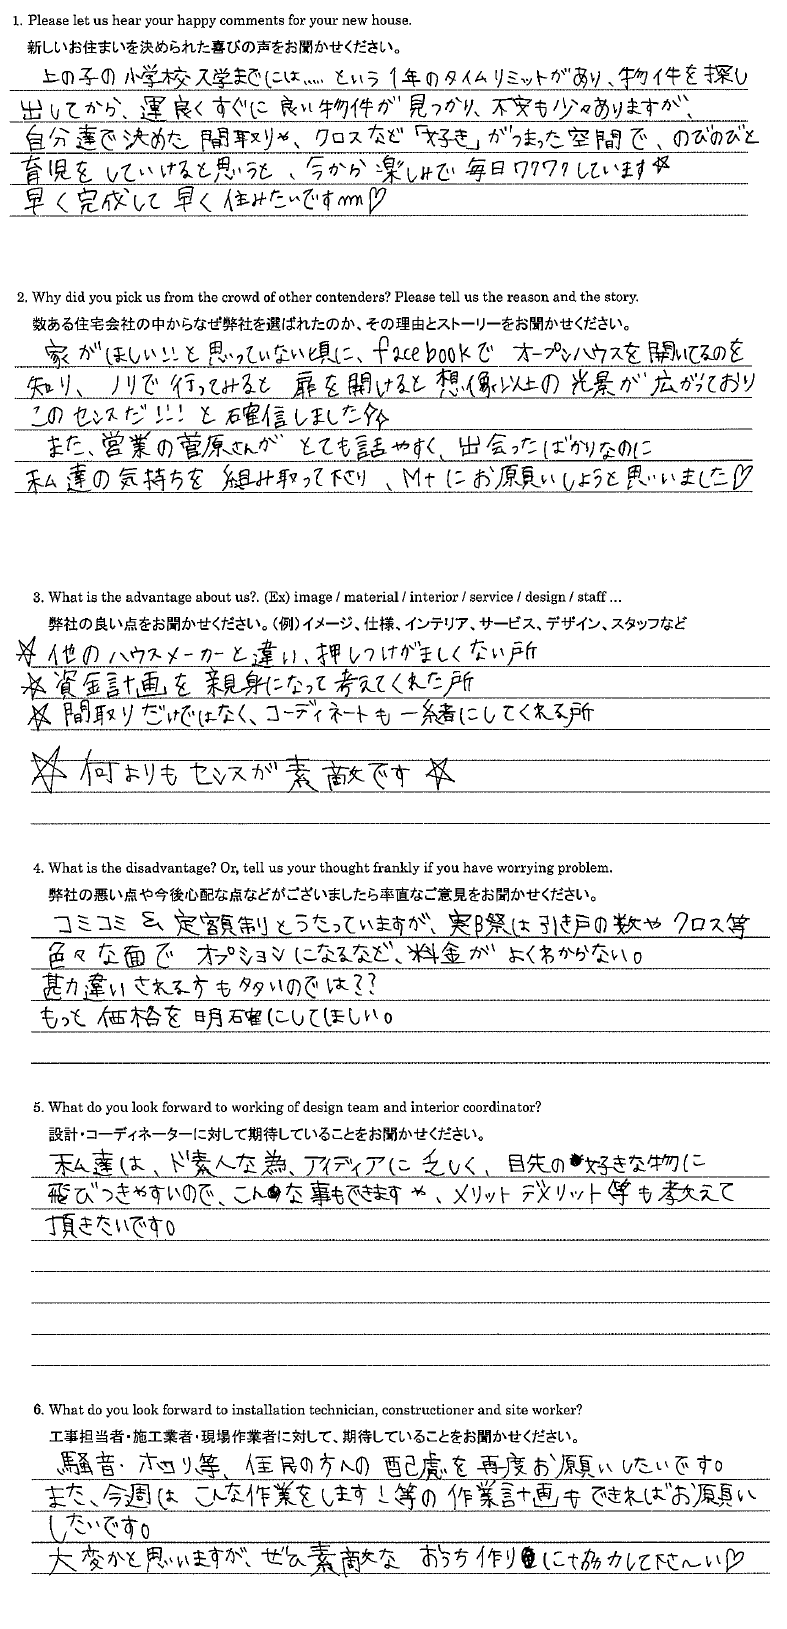 1. Please let us hear your happy comments for your new house.
新しいお住まいを決められた喜びの声をお聞かせください。
上の子の小学校入学までには..... という1年のタイムリミットがあり、物件を探し
出してから、運良くすぐに良い物件が見つかり、不安も少々ありますが、
自分達で決めた間取りや、クロスなど「好き」がつまった空間で、のびのびと
育児をしていけると思うと、今から楽しみで毎日ワクワクしています☆
早く完成して早く住みたいですmm♡
2. Why did you pick us from the crowd of other contenders? Please tell us the reason and the story.
数ある住宅会社の中からなぜ弊社を選ばれたのか、その理由とストーリーをお聞かせください。
家がほしい!!と思っていない頃に、facebookでオープンハウスを開いてるのを
知り、ノリで行ってみると扉を開けると想像以上の光景が広がっており
このセンスだ!!!と確信しました☆☆
また、営業の菅原さんがとても話やすく、出会ったばかりなのに
私達の気持ちを組み取って下さり、M+にお願いしようと思いました♡
3. What is the advantage about us?. (Ex) image / material / interior / service / design / staff ...
弊社の良い点をお聞かせください。(例)イメージ、仕様、インテリア、サービス、デザイン、スタッフなど
☆他のハウスメーカーと違い、押しつけがましくない所
☆資金計画を親身になって考えてくれた所
☆間取りだけではなく、コーディネートも一緒にしてくれる所
☆何よりもセンスが素敵です☆
4. What is the disadvantage? Or, tell us your thought frankly if you have worrying problem.
弊社の悪い点や今後心配な点などがございましたら率直なご意見をお聞かせください。
コミコミ&定額制とうたっていますが、実際は引き戸の数やクロス等
色々な面でオプションになるなど、料金がよくわからない。
勘違いされる方も多いのでは??
もっと価格を明確にしてほしい。
5. What do you look forward to working of design team and interior coordinator?
設計・コーディネーターに対して期待していることをお聞かせください。
私達は、ド素人な為、アイディアに乏しく、目先の好きな物に
飛びつきやすいので、こんな事もできますや、メリットデメリット等も教えて
頂きたいです。
6. What do you look forward to installation technician, constructioner and site worker?
工事担当者・施工業者・現場作業者に対して、期待していることをお聞かせください。
騒音・ホコリ等、住民の方への配慮を再度お願いしたいです。
また、今週はこんな作業をします!等の作業計画もできればお願い
したいです。
大変かと思いますが、ぜひ素敵なおうち作りに協力して下さ〜い♡